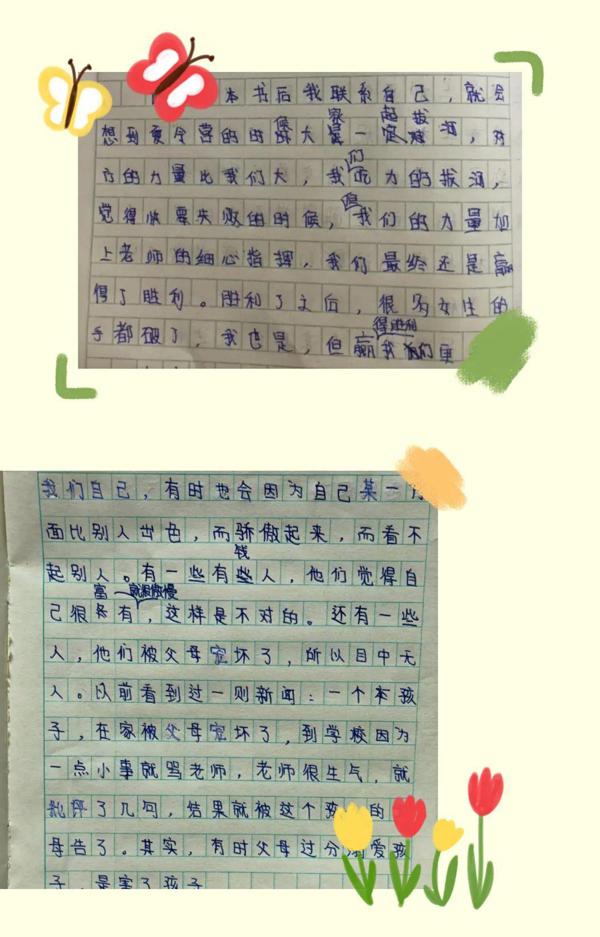 本书后我联系自己，就会
想到夏令营的时候大家一起拔河，对
方的力量比我们大，我们吃力的拔河，
觉得快要失败的时候，我们的力量加
上老师的细心指挥，我们最终还是赢
得了胜利。胜利了之后，很多女生的
手都破了，我也是，但赢得胜利我们更
我们自己，有时也会因为自己某一方
面比别人出色，而骄傲起来，而看不
起别人。有一些有些钱人，他们觉得自
己很富有，就很傲慢，这样是不对的。还有一些
人，他们被父母宠坏了，所以目中无
人。以前看到过一则新闻：一个本孩
子，在家被父母宠坏了，到学校因为
一点小事就骂老师，老师很生气，就
批评了几句，结果就被这个孩的
母告了。其实，有时父母过分溺爱孩
子，是害了孩子